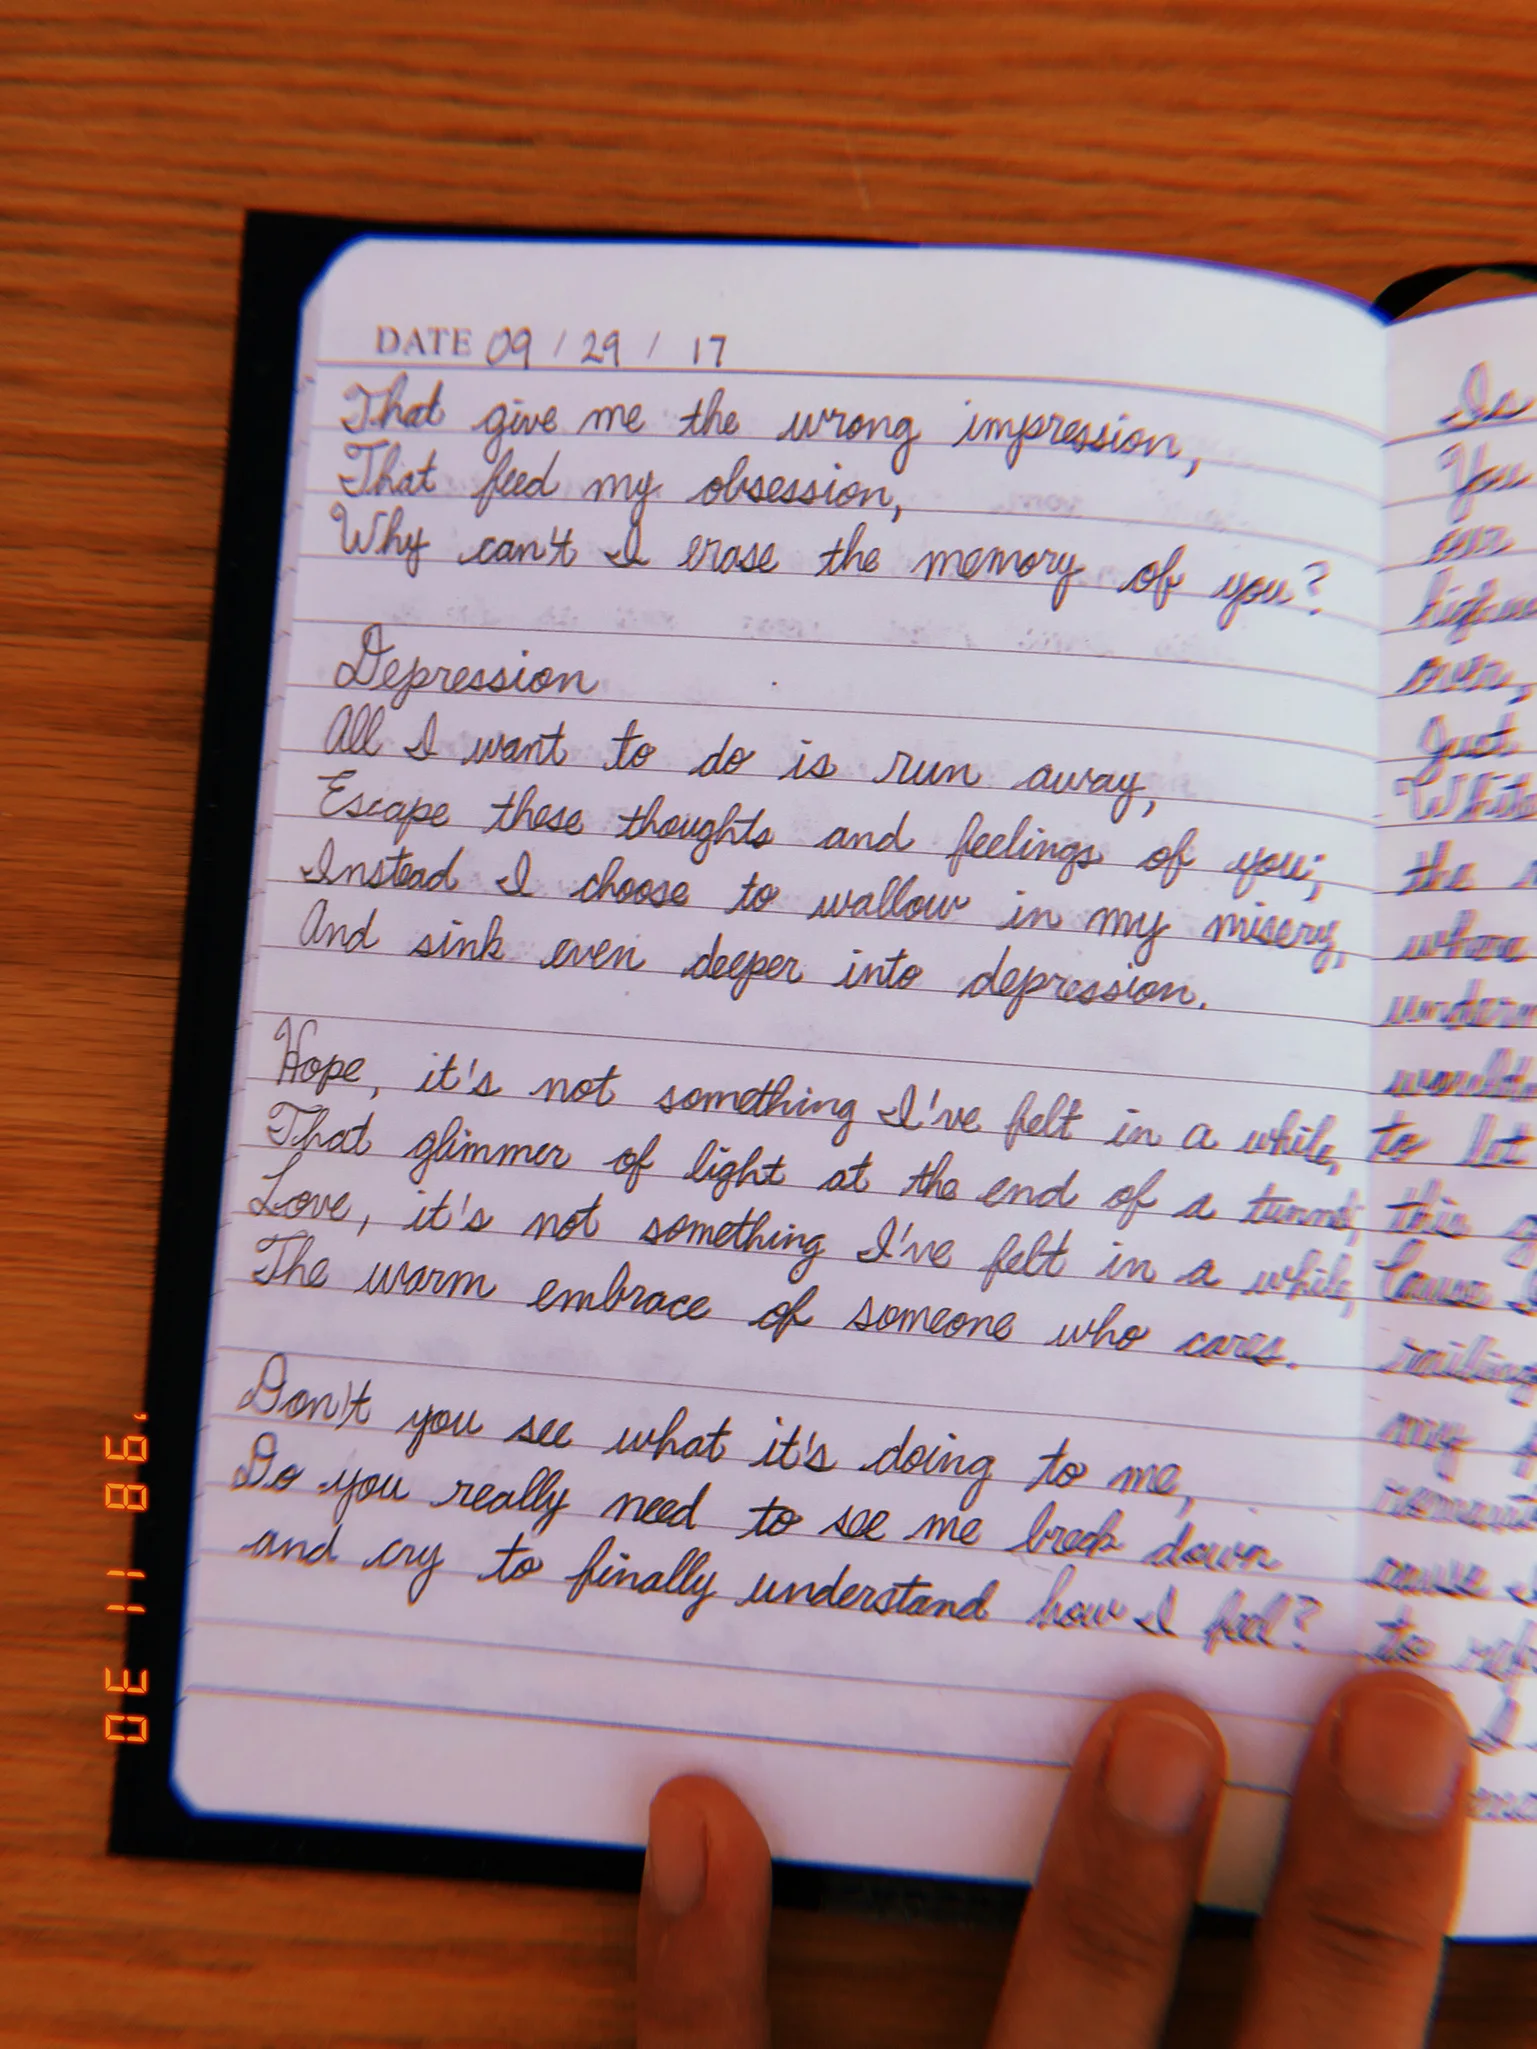 DATE 09 / 29 / 17
That give me the wrong impression,
That feed my obsession,
Why can't I erase the memory of you?
Depression
All I want to do is run away,
Escape these thoughts and feelings of you;
Instead I choose to wallow in my misery,
And sink even deeper into depression.
Hope, it's not something I've felt in a while,
That glimmer of light at the end of a tunnel;
Love, it's not something I've felt in a while,
The warm embrace of someone who cares.
Don't you see what it's doing to me,
Do you really need to see me break down
and cry to finally understand how I feel?
You
over,
Just
the
where
to let
this
Cause I
my
cause I
to
I
'98 11 30